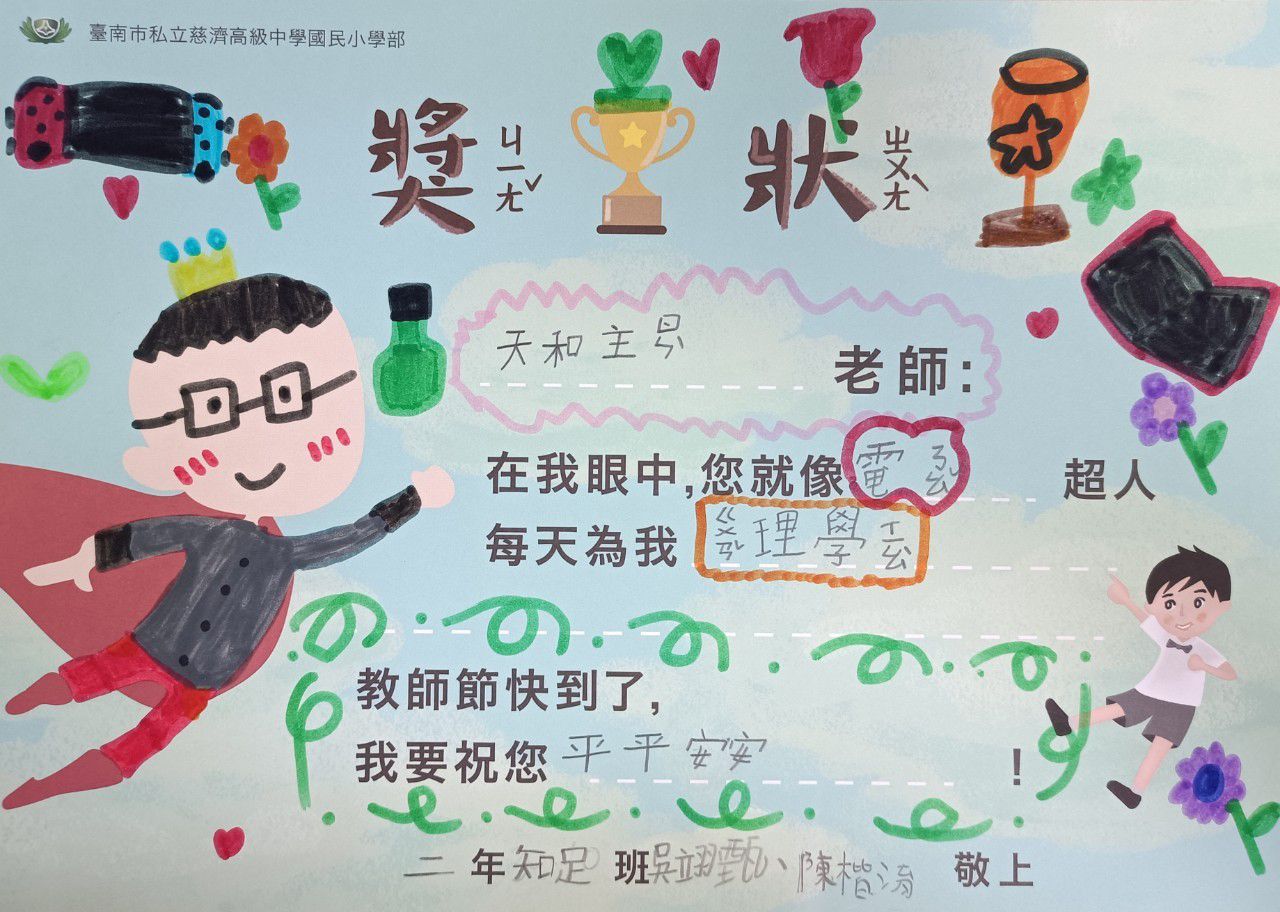 臺南市私立慈濟高級中學國民小學部
獎 ㄐㄧㄤˇ 狀 ㄓㄨㄤˋ
天和主 老師:
在我眼中,您就像電 超人
每天為我 理學
教師節快到了,
我要祝您平平安安!
二年知足班吳翊甄、陳楷淯 敬上